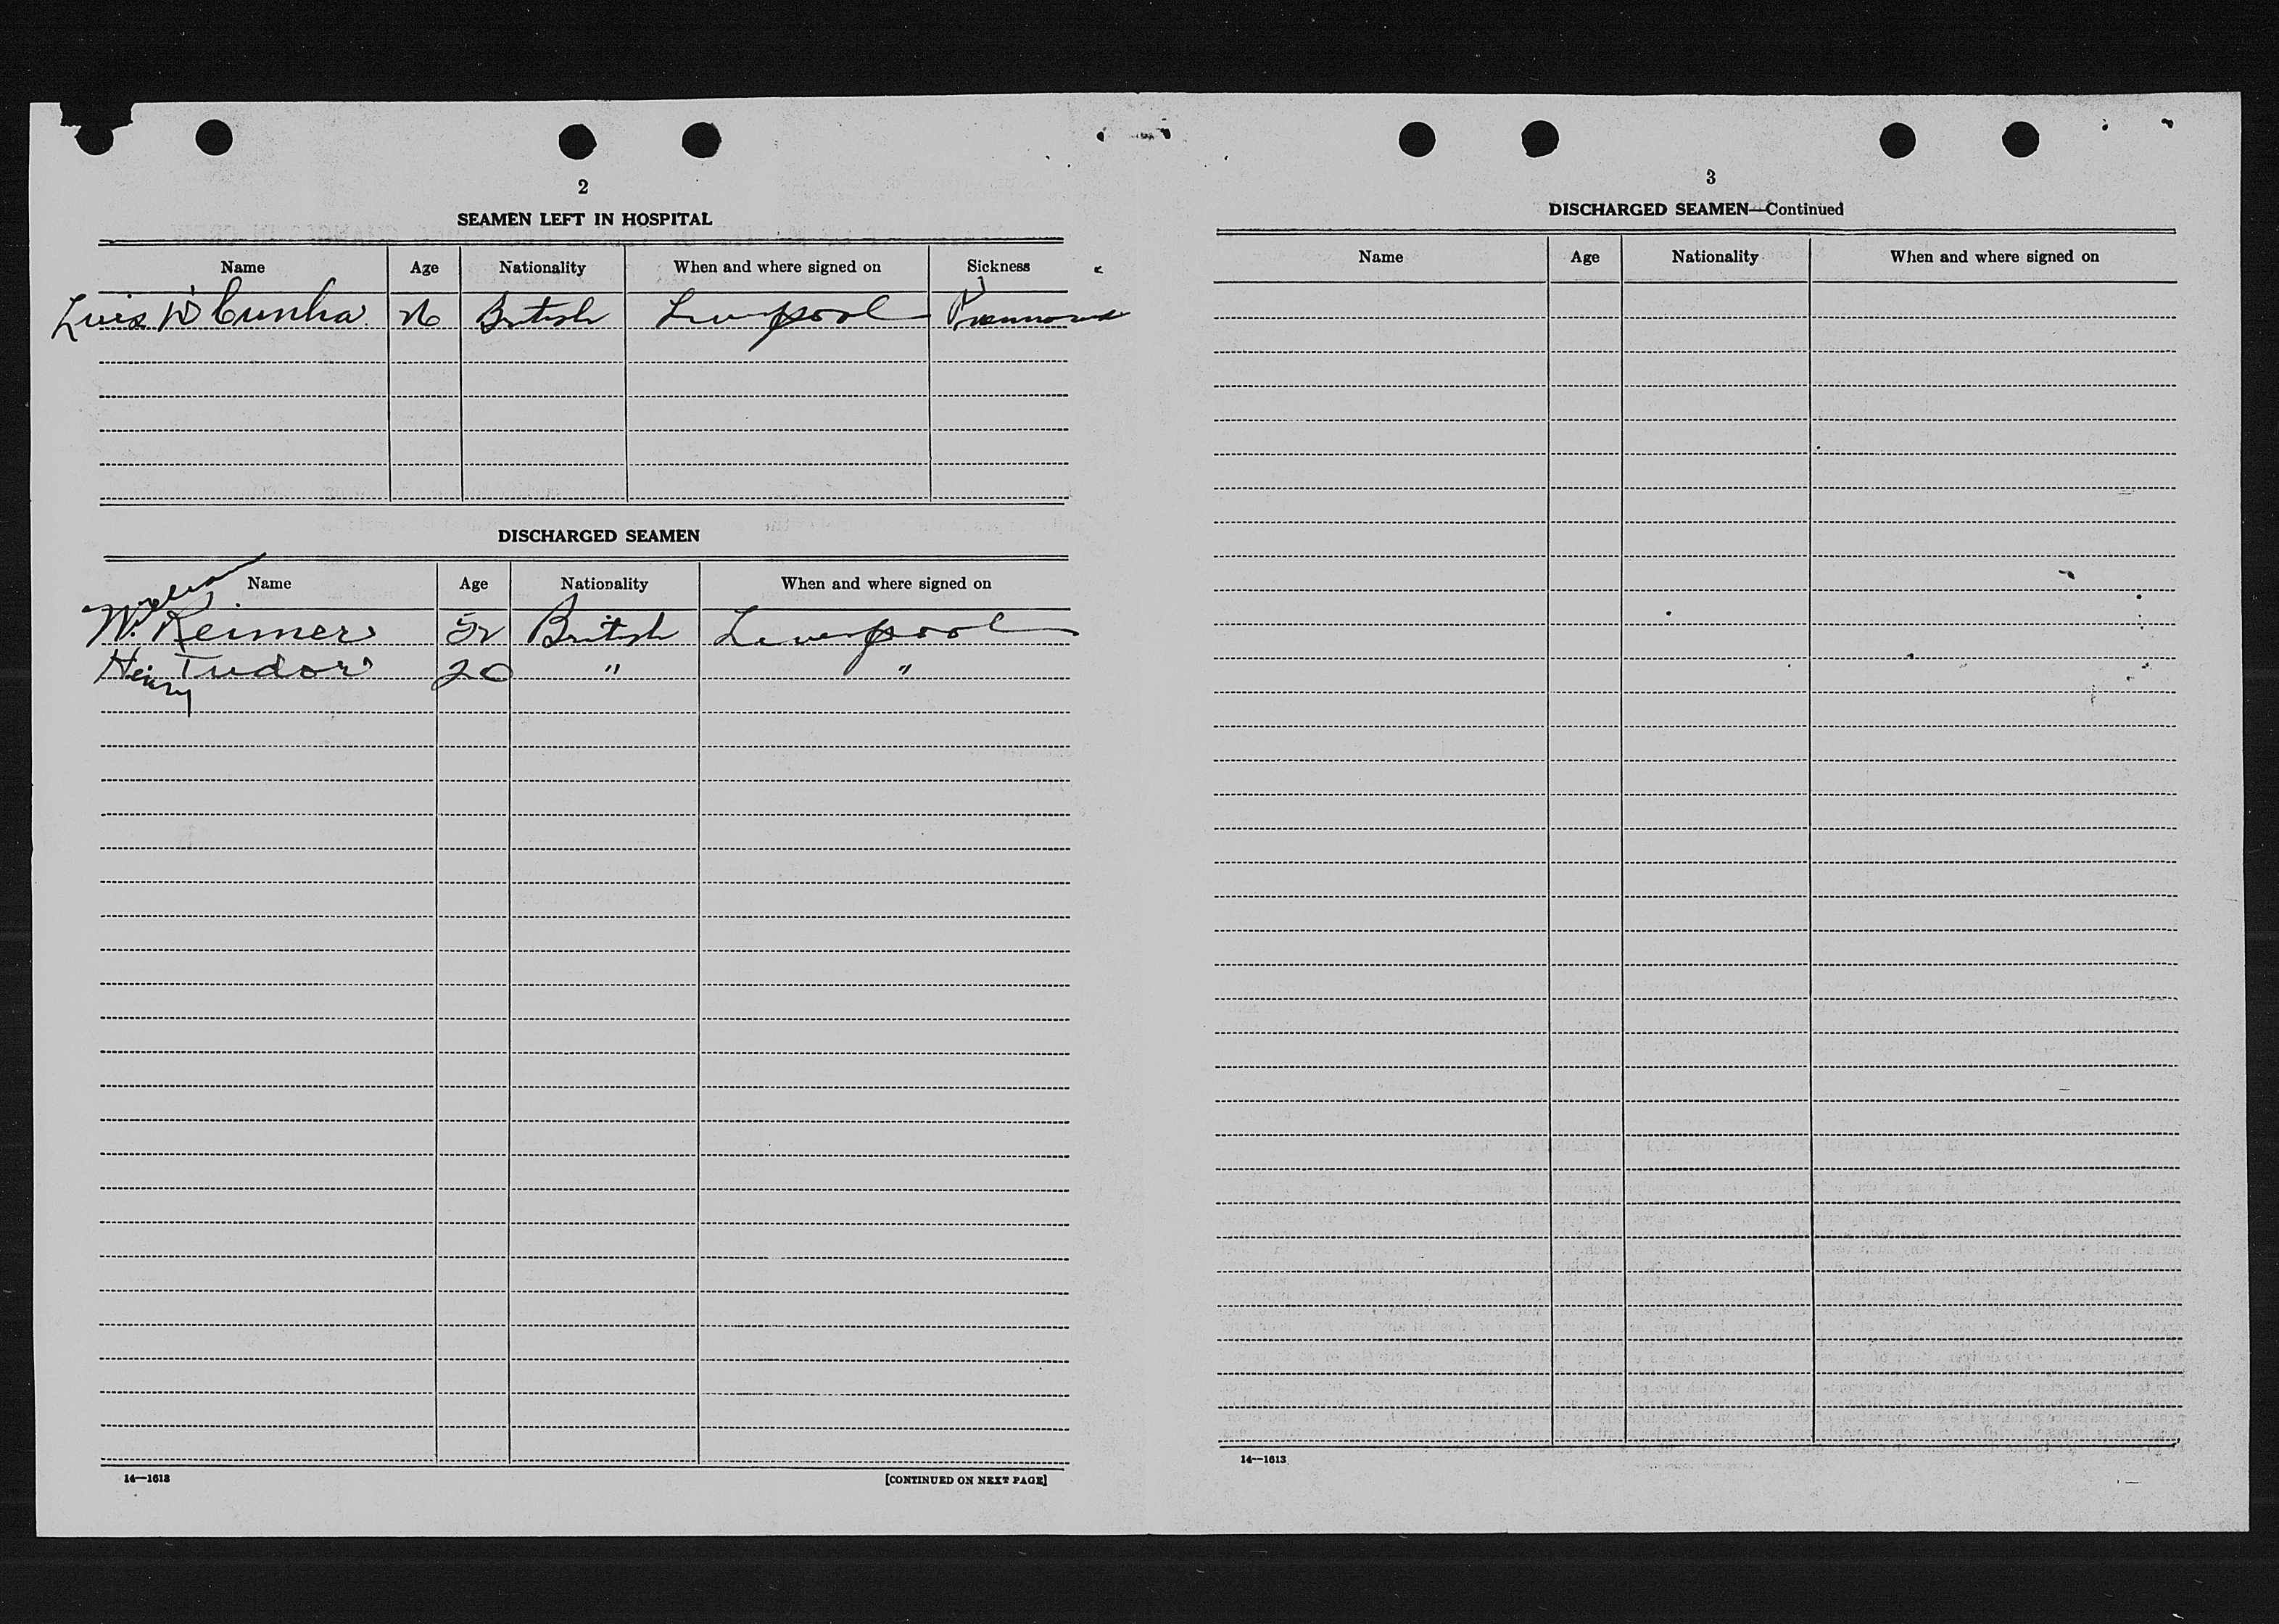 2
SEAMEN LEFT IN HOSPITAL
Name Age Nationality When and where signed on Sickness
Luis D'Cunha 26 British Liverpool
DISCHARGED SEAMEN
Name Age Nationality When and where signed on
W. Reimer 52 British Liverpool
Henry Tudor 20 " "
14—1613 [CONTINUED ON NEXT PAGE]
3
DISCHARGED SEAMEN—Continued
Name Age Nationality When and where signed on
14—1613